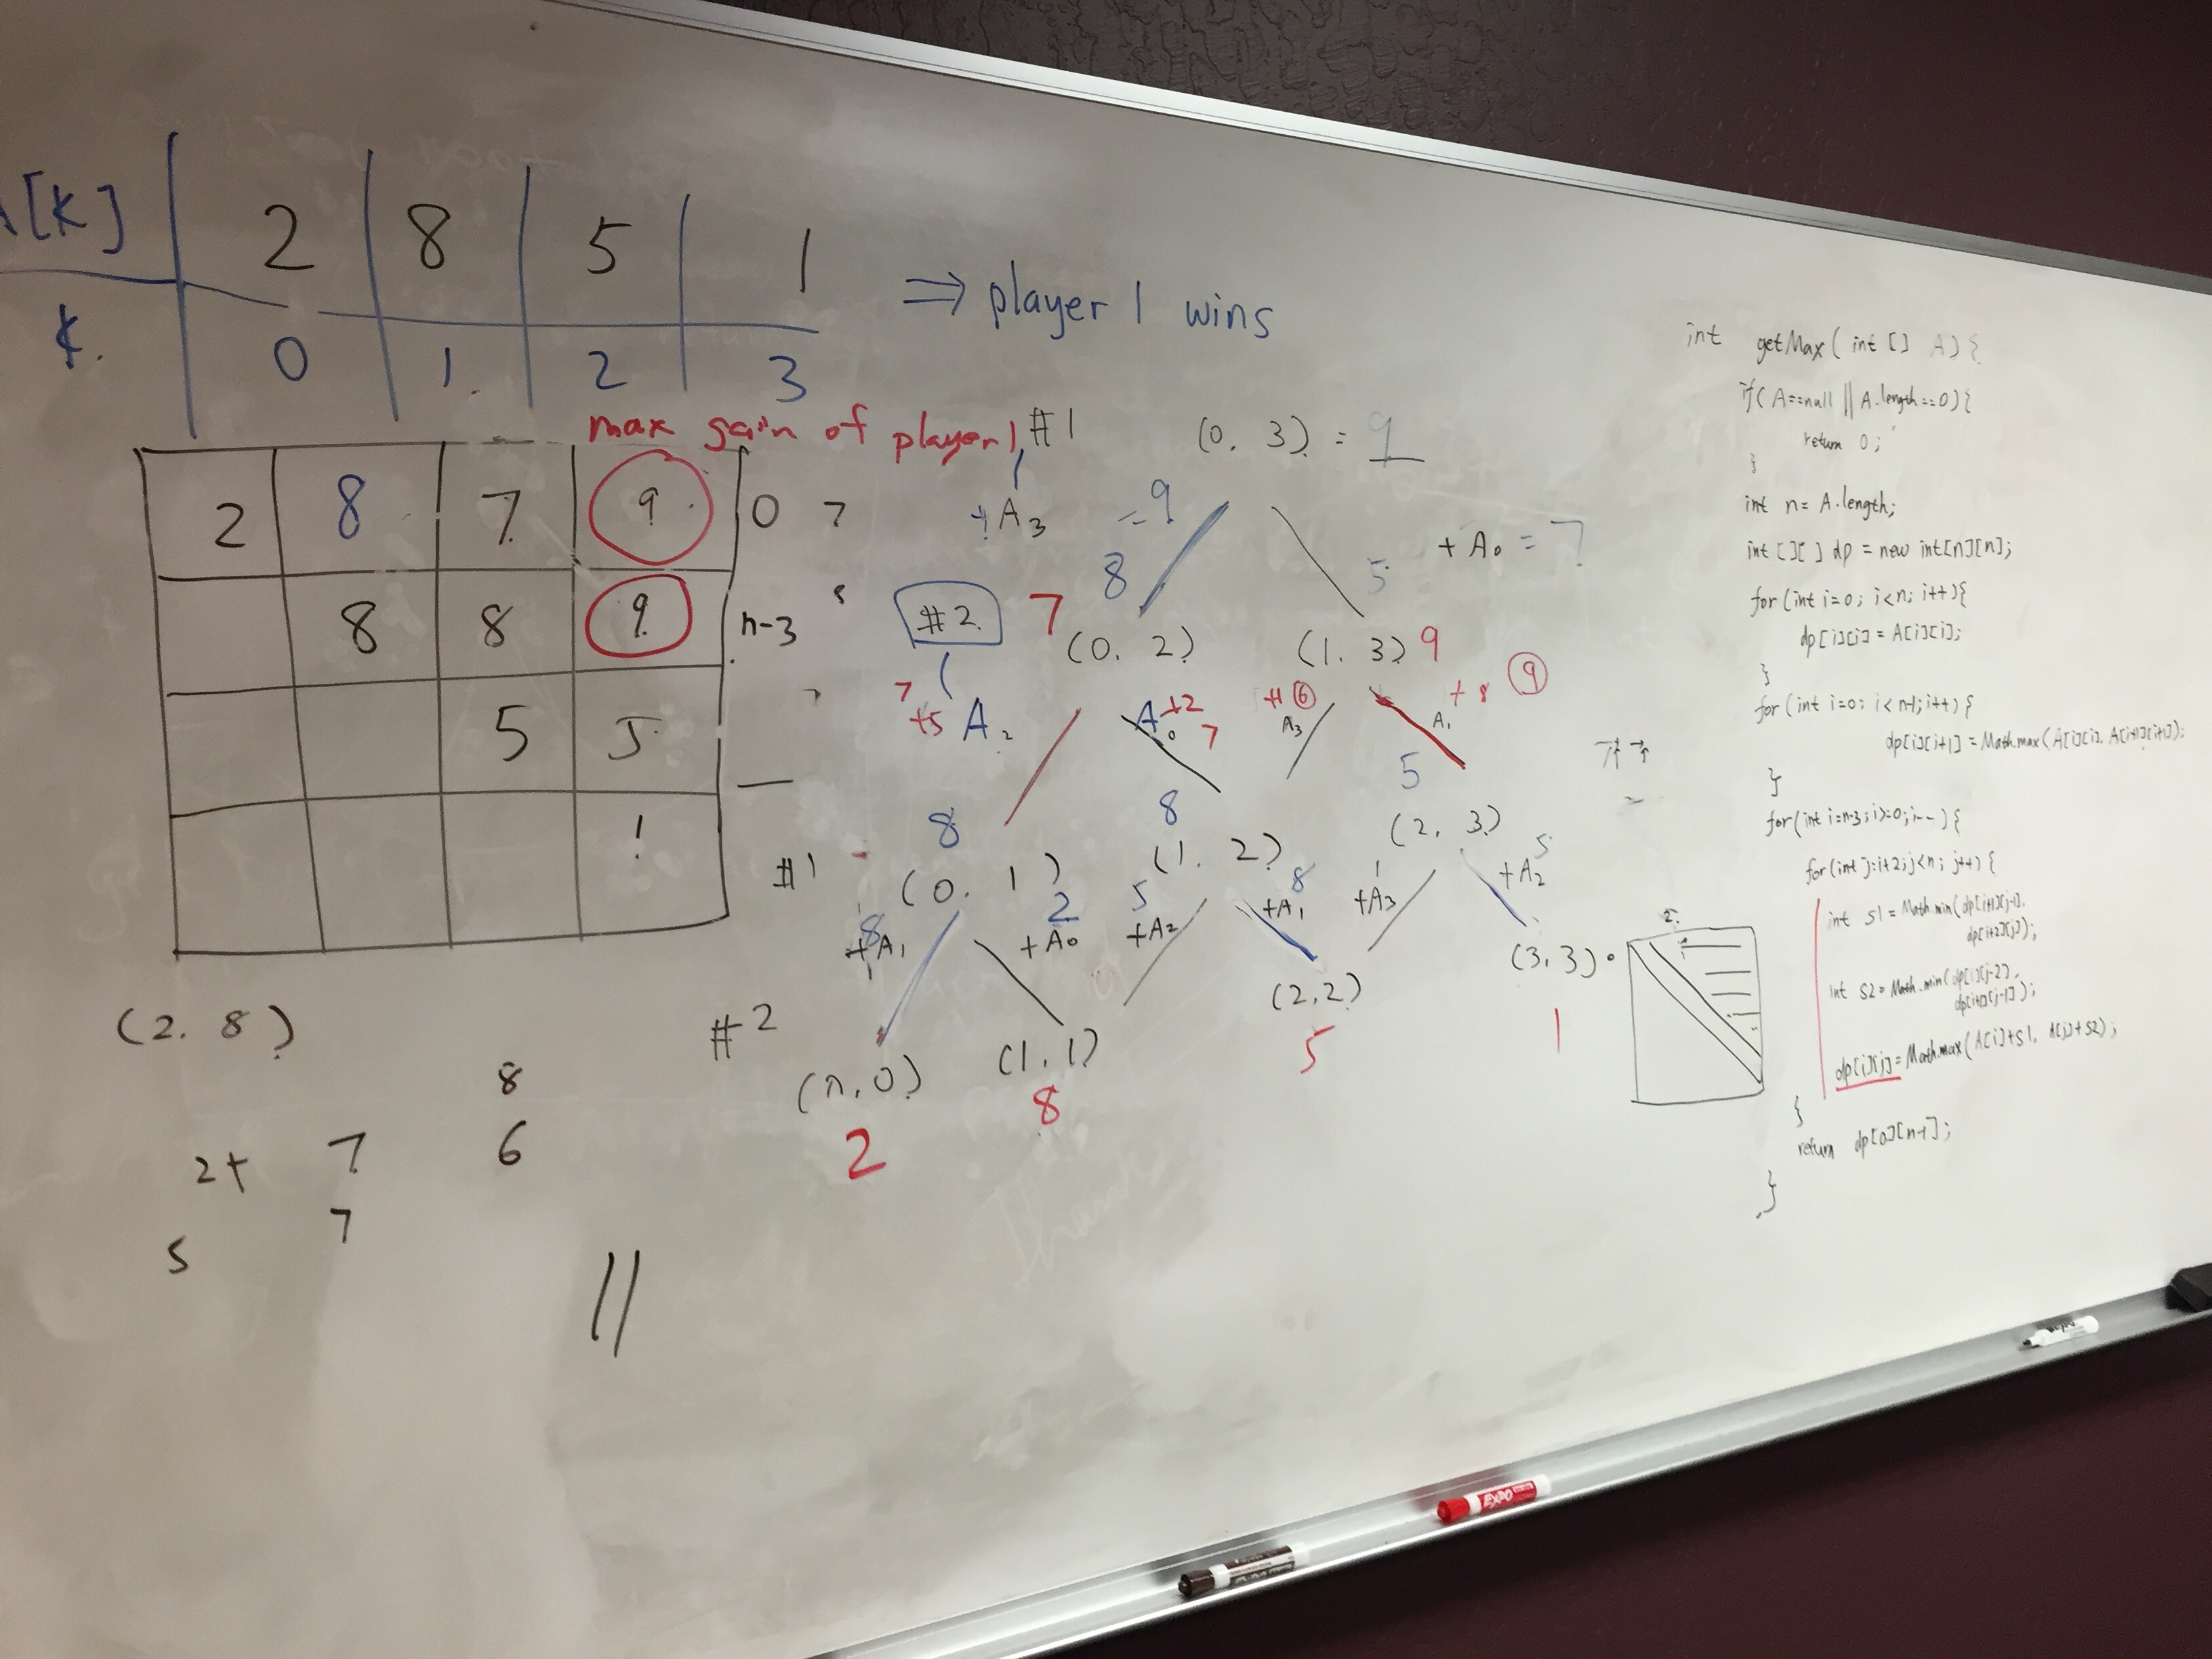 A[K] 2 8 5 1
K. 0 1 2 3
⇒ player 1 wins
max gain of player 1
#1
(0. 3) = 9
2 8 7 9 0 7
8 8 9 n-3
5 5
1
+A3 = 9
+A0 = 7
8 5
#2 7 (0. 2) (1. 3) 9
7 +5 A2
A0 +2 7
+1 ⑥ A3
+8 ⑨ A1
8 8 5
#1 (0. 1) (1. 2) (2, 3)
8 +A1
2 +A0
5 +A2
8 +A1
1 +A3
5 +A2
#2 (0,0) (1,1) (2,2) (3,3)
2 8 5 1
(2. 8)
8
2+ 7 6
7
5
int getMax(int[] A){
if(A==null || A.length==0){
return 0;
}
int n= A.length;
int [][] dp = new int[n][n];
for(int i=0; i<n; i++){
dp[i][i] = A[i][i];
}
for(int i=0; i<n-1; i++){
dp[i][i+1] = Math.max(A[i][i], A[i+1][i+1]);
}
for(int i=n-3; i>=0; i--){
for(int j=i+2; j<n; j++){
int s1 = Math.min(dp[i+1][j-1],
dp[i+2][j]);
int s2 = Math.min(dp[i][j-2],
dp[i+1][j-1]);
dp[i][j] = Math.max(A[i]+s1, A[j]+s2);
}
return dp[0][n-1];
}
EXPO